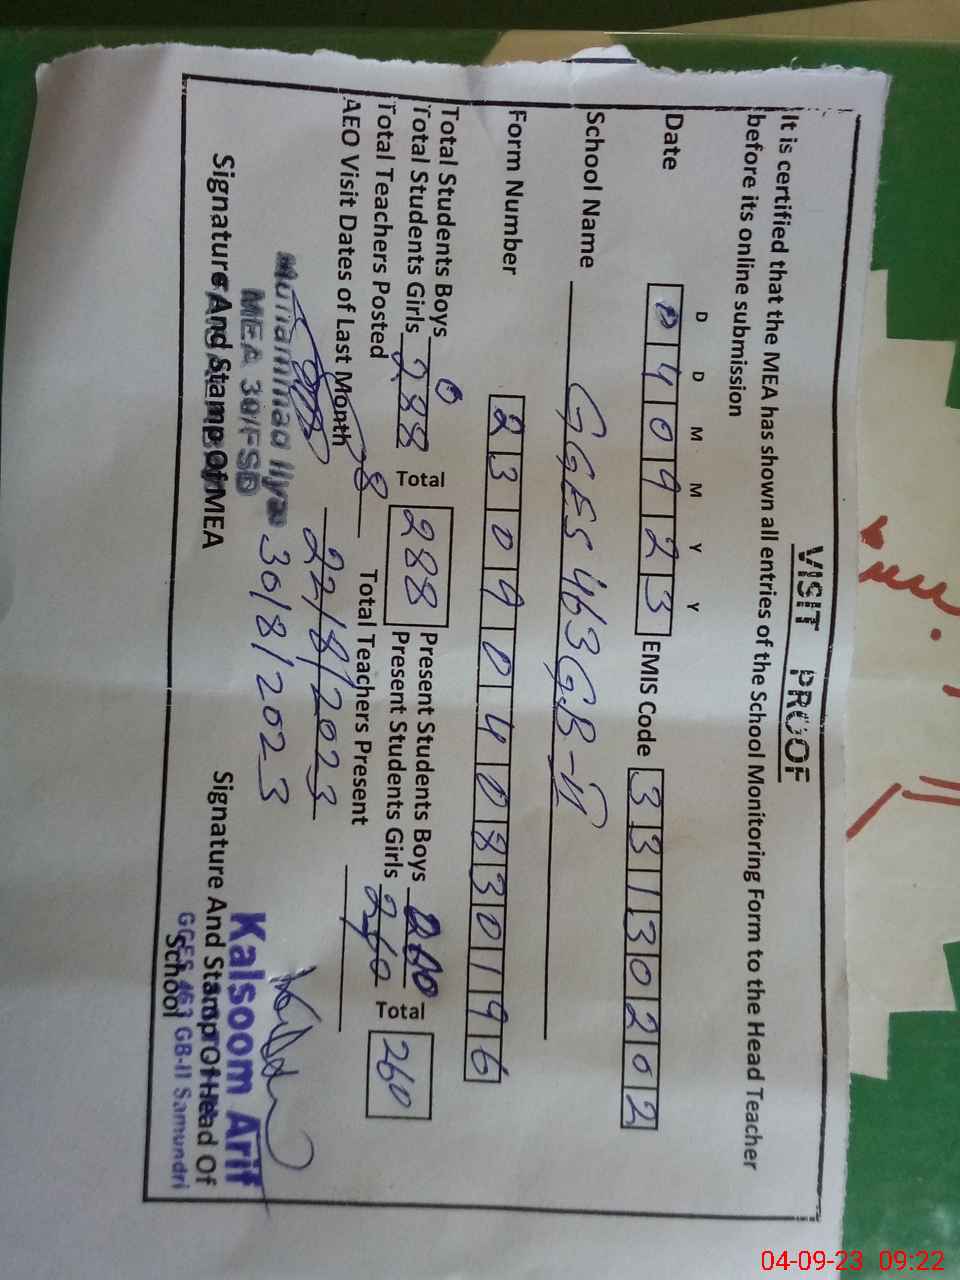 VISIT PROOF
It is certified that the MEA has shown all entries of the School Monitoring Form to the Head Teacher
before its online submission
D D M M Y Y
Date 040923 EMIS Code 33130202
School Name GGES 463 GB-II
Form Number
Total Students Boys 0 Present Students Boys
Total Students Girls 288 Total 288 Present Students Girls 260 Total 260
Total Teachers Posted 8 Total Teachers Present
AEO Visit Dates of Last Month 22/8/2023
30/8/2023
Muhammad Ilyas
MEA 30/FSD
Signature And Stamp Of MEA
Kalsoom Arif
Signature And Stamp Of Head Of
School
GGES 463 GB-II Samundri
04-09-23 09:22